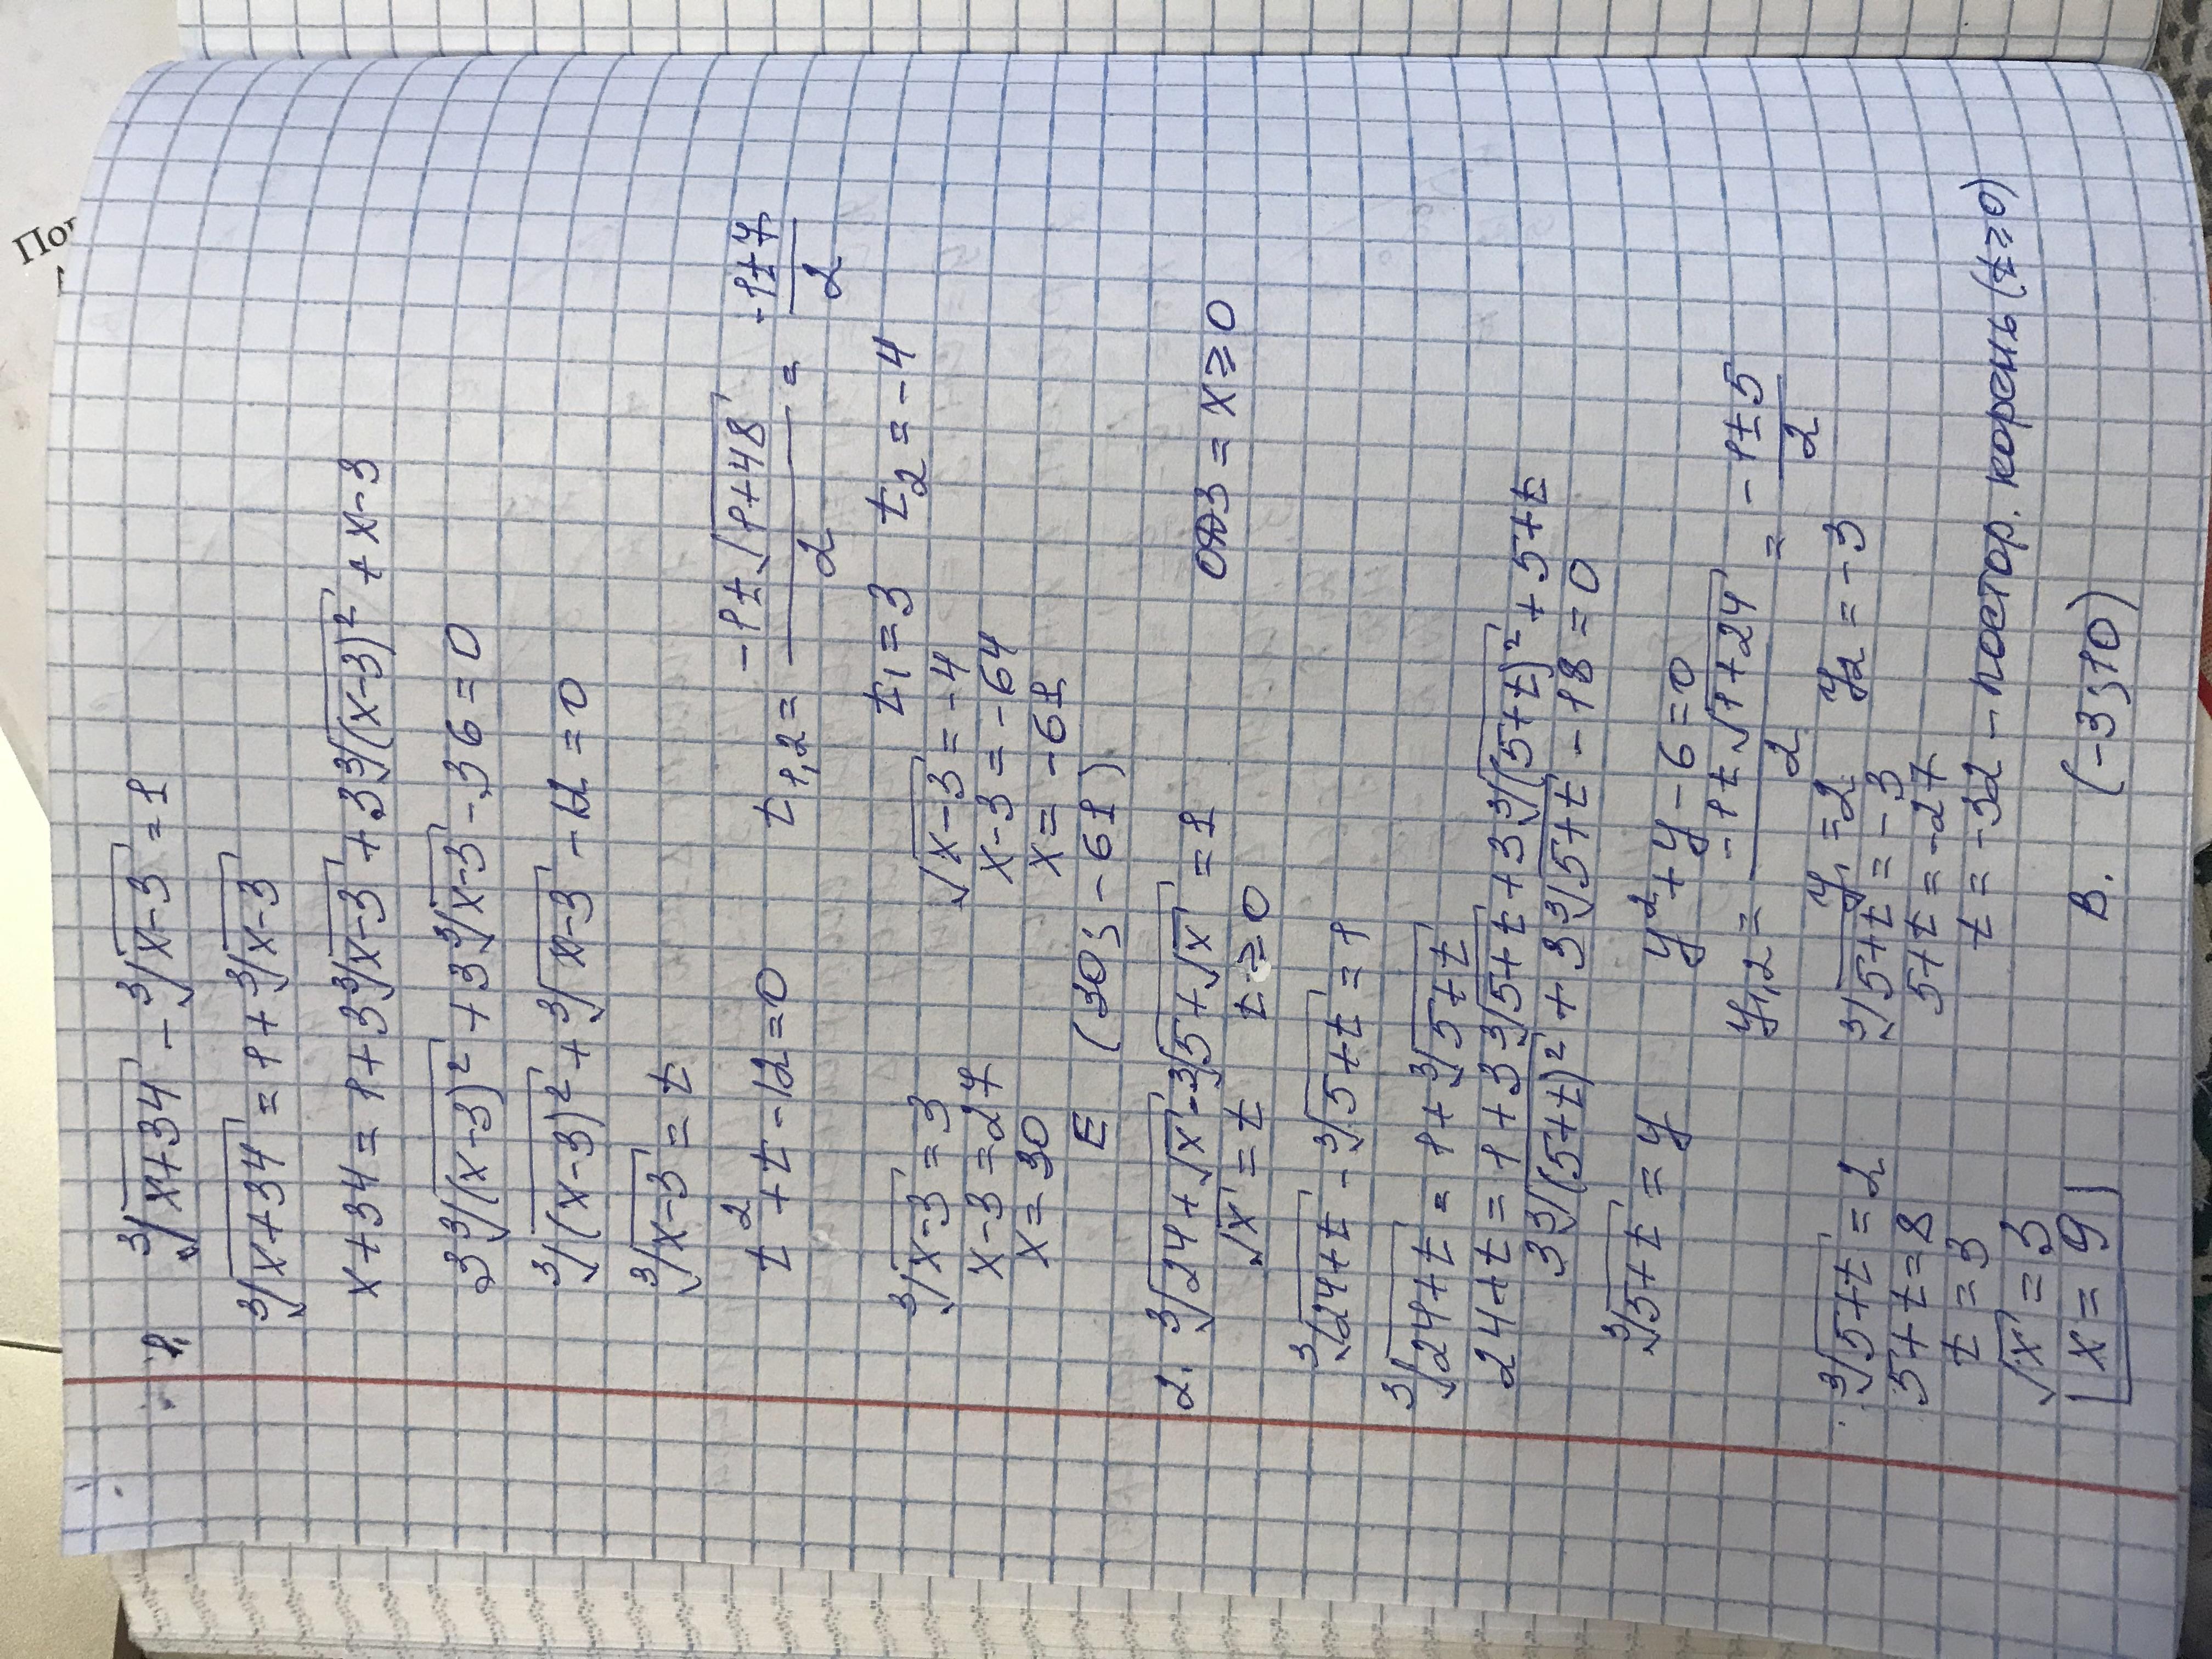 1. ∛(x+34) - ∛(x-3) = 1
∛(x+34) = 1 + ∛(x-3)
x+34 = 1 + 3∛(x-3) + 3∛(x-3)² + x-3
3∛(x-3)² + 3∛(x-3) - 36 = 0
∛(x-3)² + ∛(x-3) - 12 = 0
∛(x-3) = t
t² + t - 12 = 0 t₁,₂ = (-1±√(1+48))/2 = (-1±7)/2
t₁ = 3 t₂ = -4
∛(x-3) = 3 √(x-3) = -4
x-3 = 27 x-3 = -64
x = 30 x = -61
E (30; -61)
2. ∛(24+√x) - ∛(5+√x) = 1 ОДЗ = x ≥ 0
√x = t t ≥ 0
∛(24+t) - ∛(5+t) = 1
∛(24+t) = 1 + ∛(5+t)
24+t = 1 + 3∛(5+t) + 3∛(5+t)² + 5+t
3∛(5+t)² + 3∛(5+t) - 18 = 0
∛(5+t) = y y² + y - 6 = 0
y₁,₂ = (-1±√(1+24))/2 = (-1±5)/2
y₁ = 2 y₂ = -3
∛(5+t) = 2 ∛(5+t) = -3
5+t = 8 5+t = -27
t = 3 t = -32 - постор. корень (t ≥ 0)
√x = 3
x = 9 B. (-3;10)
Пог